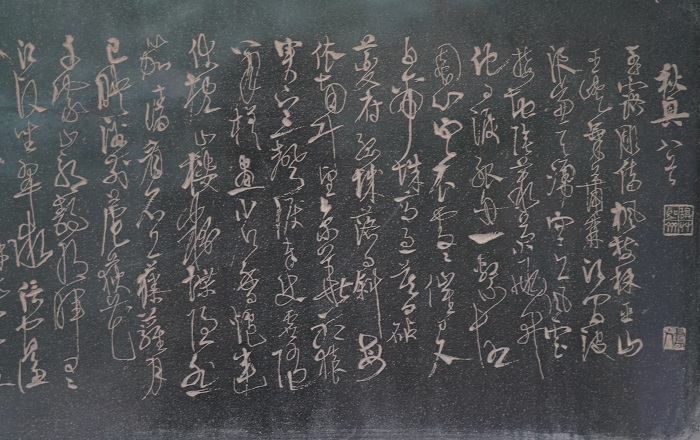 秋興八首
玉露凋傷楓樹林巫山
巫峽氣蕭森江間波
浪兼天湧塞上風雲
接地陰叢菊兩開
他日淚孤舟一繫故
園心寒衣處處催刀尺
白帝城高急暮砧
夔府孤城落日斜每
依南斗望京華聽猿
實下三聲淚奉使虛隨
八月槎畫省香爐違
伏枕山樓粉堞隱悲
笳請看石上藤蘿月
已映洲前蘆荻花
千家山郭靜朝暉日日
江樓坐翠微信宿漁